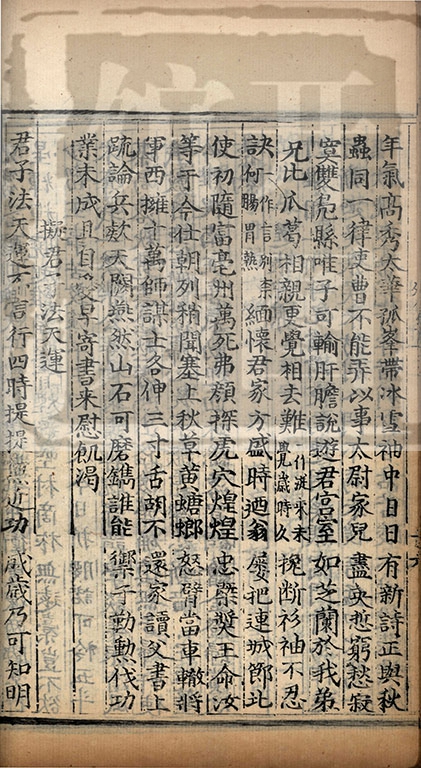 年氣高秀太華孤峯帶冰雪袖中日日有新詩正與秋
蟲同一律吏曹不能弄以事太尉家兒盡央愁窮愁寂
寞雙鳧縣唯子可輸肝膽說遊君宮室如芝蘭於我弟
兄比瓜葛相親更覺相去難一作漣洏未覺歲時久挽断衫袖不忍
訣一作言別李何腸胃熱緬懷君家方盛時迺翁屢把連城節北
使初隨富亳州萬死弗顧探虎穴煌煌忠槩奬王命汝
等于今仕朝列稍聞塞上秋草黃螗螂怒臂當車轍將
軍西擁十萬師謀士各伸三寸舌胡不還家讀父書上
疏論兵欵天闕燕然山石可磨鐫誰能禦子勤勲伐功
業未成且自愛早寄書來慰飢渴
擬君子法天運
君子法天運不言行四時提提近功歲歲乃可知明